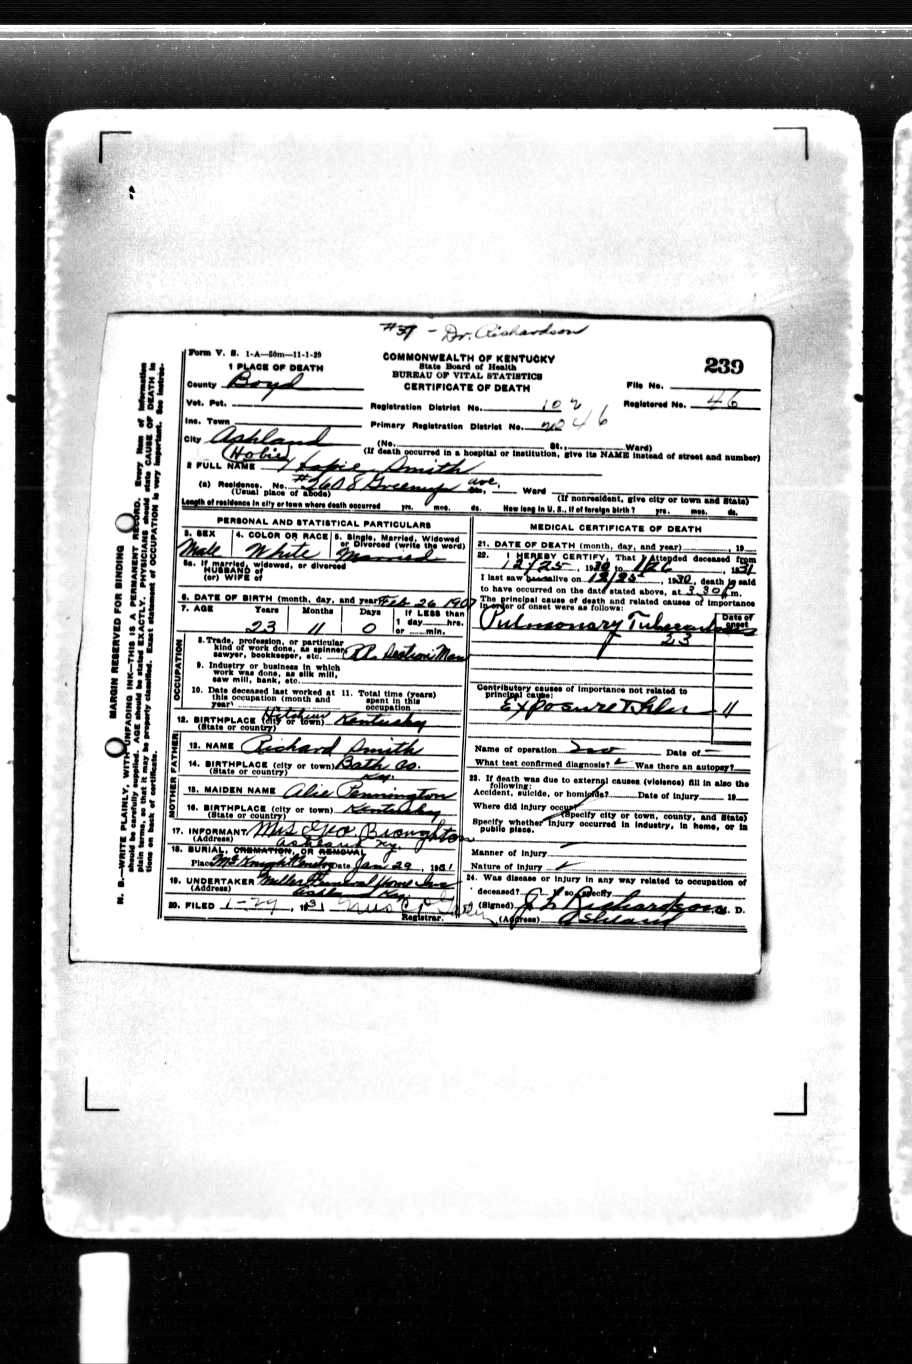 #37 - Dr. Richardson
Form V. S. 1-A—50m—11-1-29
COMMONWEALTH OF KENTUCKY
State Board of Health
BUREAU OF VITAL STATISTICS
CERTIFICATE OF DEATH
239
1 PLACE OF DEATH
County Boyd
File No.
Vot. Pct.
Registration District No. 102
Registered No. 46
Inc. Town
Primary Registration District No.
City Ashland
(No. St., Ward)
(If death occurred in a hospital or institution, give its NAME instead of street and number)
(Hobie)
2 FULL NAME Smith
(a) Residence. No. #2608 Greenup ave, Ward
(Usual place of abode)
(If nonresident, give city or town and State)
Length of residence in city or town where death occurred yrs. mos. ds. How long in U. S., if of foreign birth? yrs. mos. ds.
PERSONAL AND STATISTICAL PARTICULARS
3. SEX
Male
4. COLOR OR RACE
White
5. Single, Married, Widowed
or Divorced (write the word)
Married
5a. If married, widowed, or divorced
HUSBAND of
(or) WIFE of
6. DATE OF BIRTH (month, day, and year) Feb 26 1907
7. AGE Years Months Days If LESS than
1 day hrs.
or min.
23 11 0
OCCUPATION
8. Trade, profession, or particular
kind of work done, as spinner,
sawyer, bookkeeper, etc. RR Section Man
9. Industry or business in which
work was done, as silk mill,
saw mill, bank, etc.
10. Date deceased last worked at
this occupation (month and
year)
11. Total time (years)
spent in this
occupation
12. BIRTHPLACE (city or town) Kentucky
(State or country)
FATHER
13. NAME Richard Smith
14. BIRTHPLACE (city or town) Bath Co.
(State or country) Ky.
MOTHER
15. MAIDEN NAME Alie Pennington
16. BIRTHPLACE (city or town) Kentucky
(State or country)
17. INFORMANT Mrs Geo. Broughton
(Address) Ashland Ky.
18. BURIAL, CREMATION, OR REMOVAL
Place Date Jan 29, 1931
19. UNDERTAKER Miller Funeral Home Inc
(Address) Ashland Ky.
20. FILED 1-29, 1931 Mrs C P
Registrar.
MEDICAL CERTIFICATE OF DEATH
21. DATE OF DEATH (month, day, and year) , 19
22. I HEREBY CERTIFY, That I attended deceased from
12/25, 1930 to 1/26, 1931
I last saw alive on 12/25, 1930, death is said
to have occurred on the date stated above, at 3.30 P.m.
The principal cause of death and related causes of importance
in order of onset were as follows:
Date of
onset
Pulmonary Tuberculosis
23
Contributory causes of importance not related to
principal cause:
Exposure
11
Name of operation no Date of —
What test confirmed diagnosis? Was there an autopsy?
23. If death was due to external causes (violence) fill in also the
following:
Accident, suicide, or homicide? Date of injury 19
Where did injury occur?
(Specify city or town, county, and State)
Specify whether injury occurred in industry, in home, or in
public place.
Manner of injury
Nature of injury
24. Was disease or injury in any way related to occupation of
deceased? If so, specify
(Signed) J L Richardson M. D.
(Address) Ashland
MARGIN RESERVED FOR BINDING
N. B.—WRITE PLAINLY, WITH UNFADING INK—THIS IS A PERMANENT RECORD. Every item of information
should be carefully supplied. AGE should be stated EXACTLY. PHYSICIANS should state CAUSE OF DEATH in
plain terms, so that it may be properly classified. Exact statement of OCCUPATION is very important. See instruc-
tions on back of certificate.